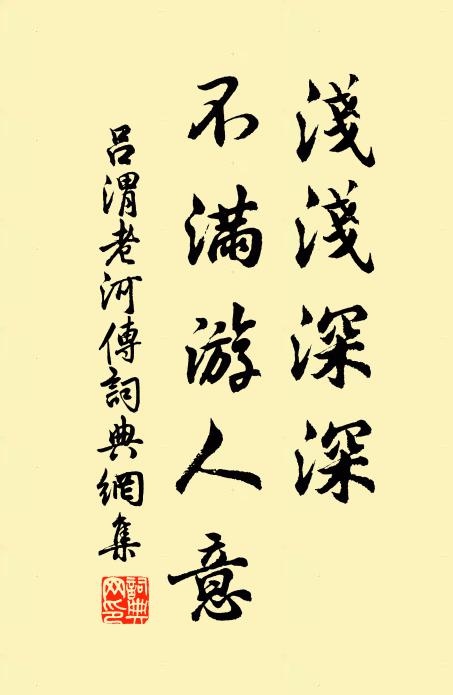 淺淺深深
不滿游人意
吕渭老河傳詞典網集
詞典網印